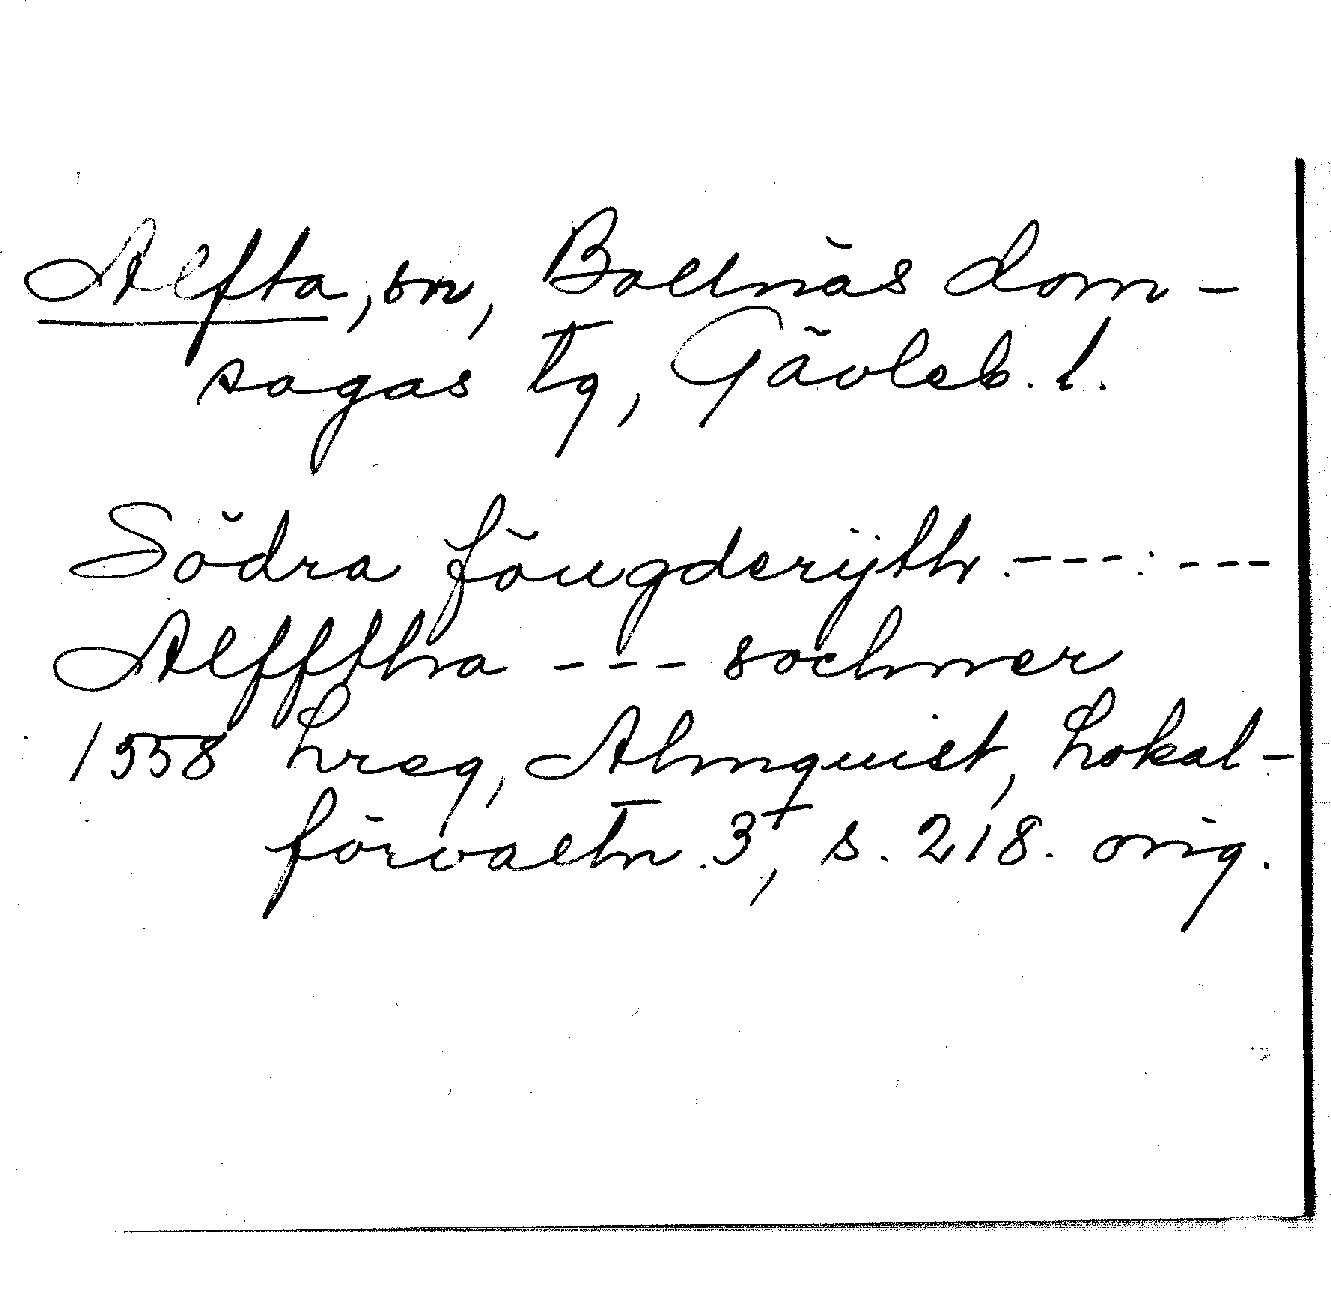 Alfta, sn, Bollnäs dom-
sagas tg, Gävleb. l.
Södra föugderijth. ---: ---
Alfftha --- sochner
1558 hreg, Almquist, Lokal-
förvaltn. 3, s. 218. orig.